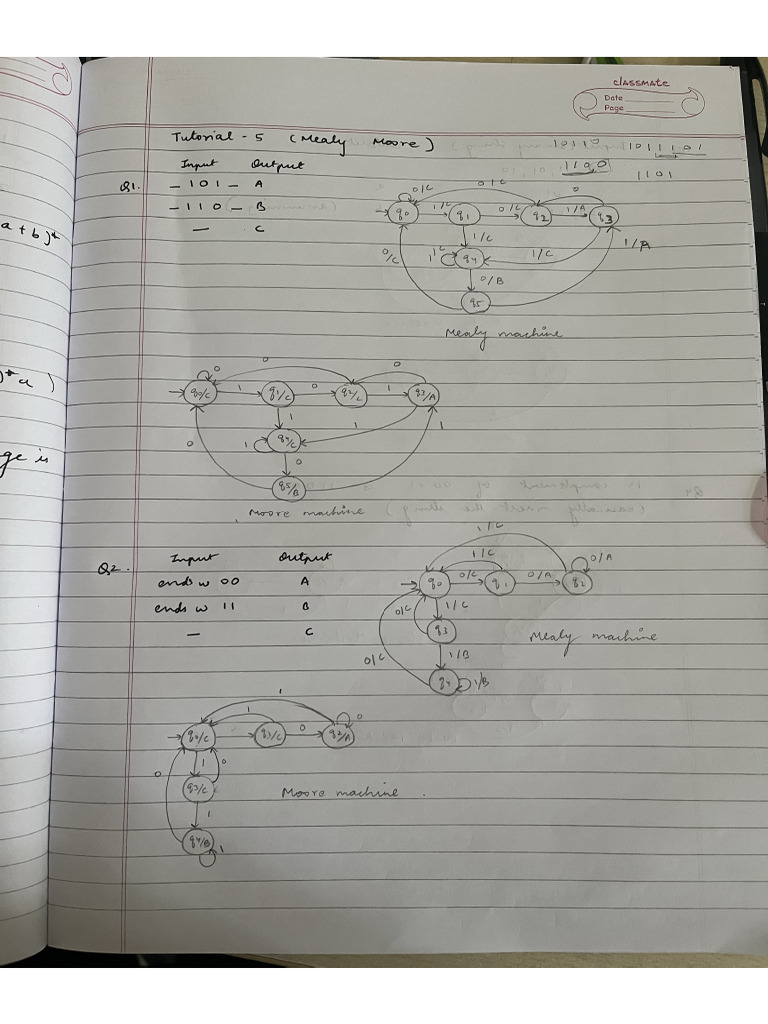 classmate
Date
Page
Tutorial - 5 (Mealy Moore)
10110 1011101
1100 1101
Input Output
Q1. - 101 - A
- 110 - B
— C
0/C 0/C 0
q0 1/C q1 0/C q2 1/A q3
1/C 1/C 1/A
0/C 1/C q4
0/B
q5
Mealy machine
0 0 0
q0/C 1 q1/C 0 q2/C 1 q3/A
1 1 1
0 1 q4/C
0
q5/B
Moore machine
1/C
Q2. Input Output
1/C 0/A
ends w 00 A
q0 0/C q1 0/A q2
ends w 11 B
0/C 1/C
— C
q3
Mealy machine
0/C 1/B
q4 1/B
1
1 0
q0/C q1/C 0 q2/A
1 0
0 q3/C
Moore machine .
1
q4/B 1
a + b)*
)* a )
ge is